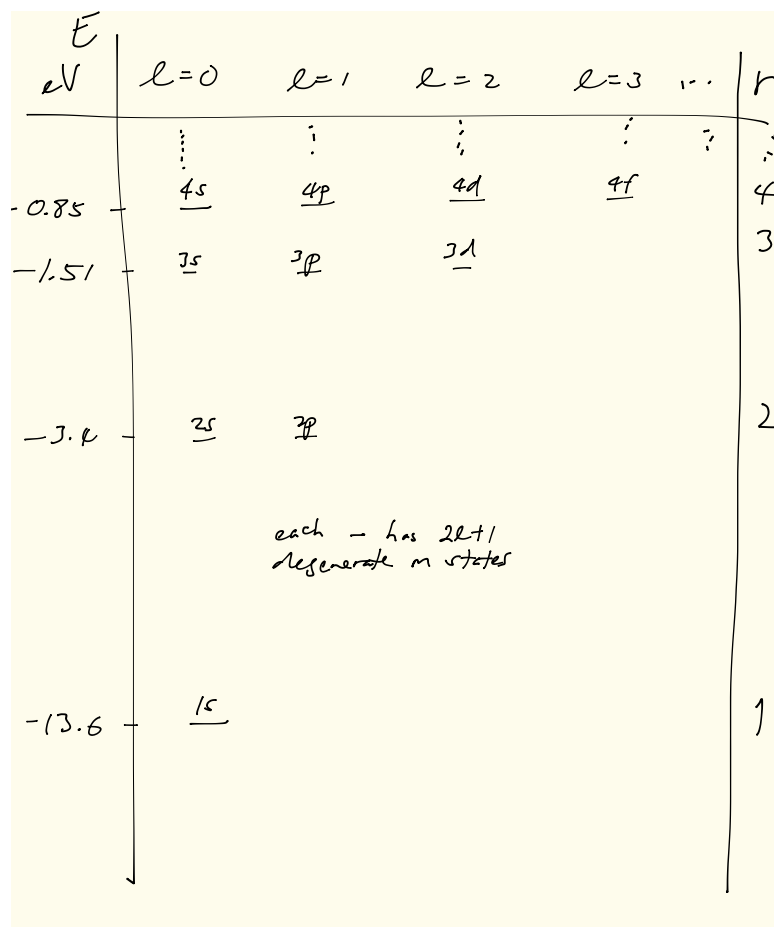 E
eV l=0 l=1 l=2 l=3 ...
-0.85 4s 4p 4d 4f 4
-1.51 3s 3p 3d 3
-3.4 2s 2p 2
each - has 2l+1
degenerate m states
-13.6 1s 1